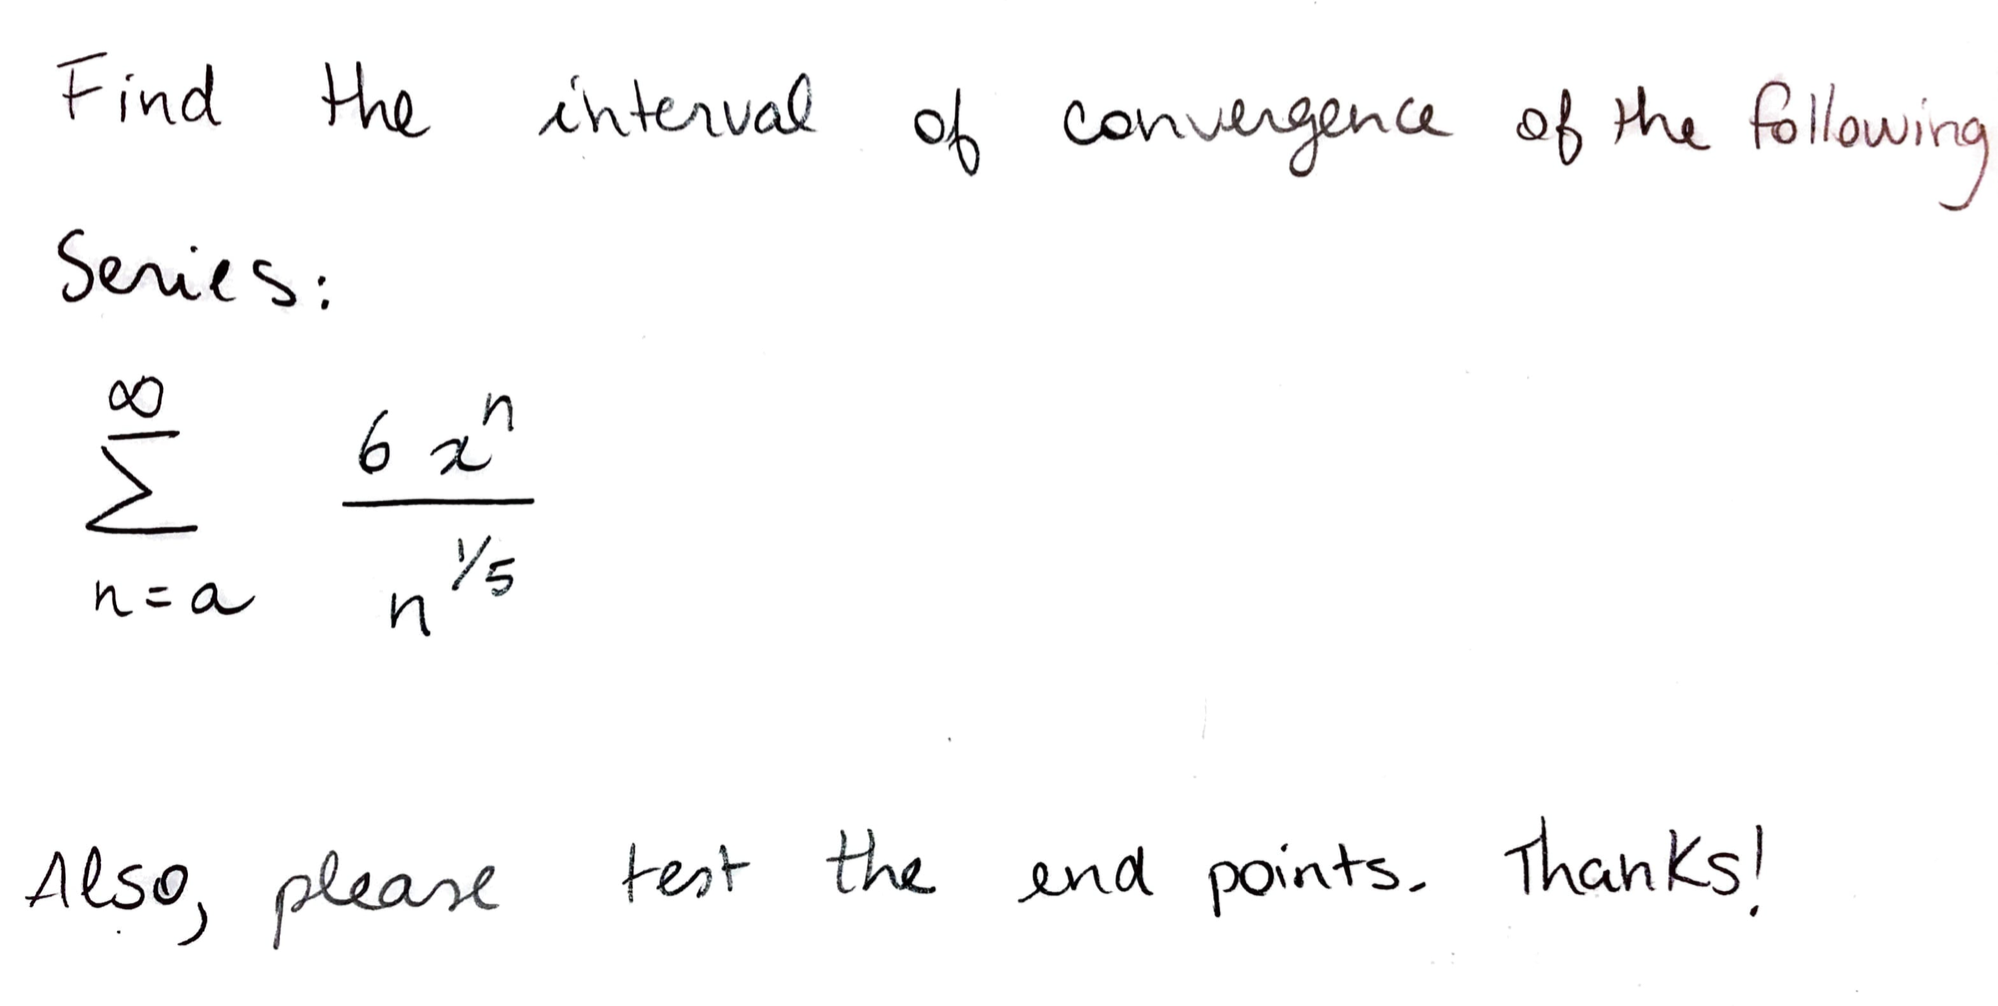 Find the interval of convergence of the following
Series:
∞
∑ 6 x^n / n^1/5
n = a
Also, please test the end points. Thanks!